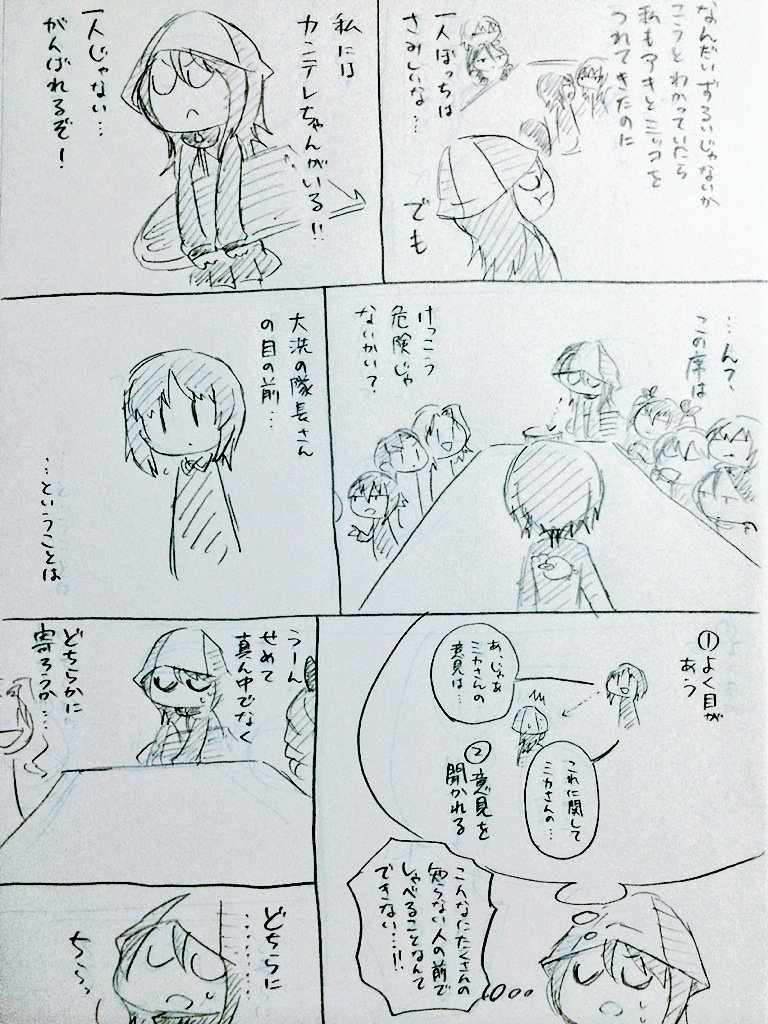 なんだいずるいじゃないか
こうとわかっていたら
私もアキとミッコを
つれてきたのに
一人ぼっちは
さみしいな…
でも
私には
カンテレちゃんがいる!!
一人じゃない…
がんばれるぞ!
…ん?
この席は
けっこう
危険じゃ
ないかい?
大洗の隊長さん
の目の前…
…ということは
①よく目が
あう
あ、じゃあ
ミカさんの
意見は…
これに関して
ミカさんの…
②意見を
聞かれる
こんなにたくさんの
知らない人の前で
しゃべることなんて
できない…!!
うーん
せめて
真ん中でなく
どちらかに
寄ろうか…
どちらに
………
ちらっ